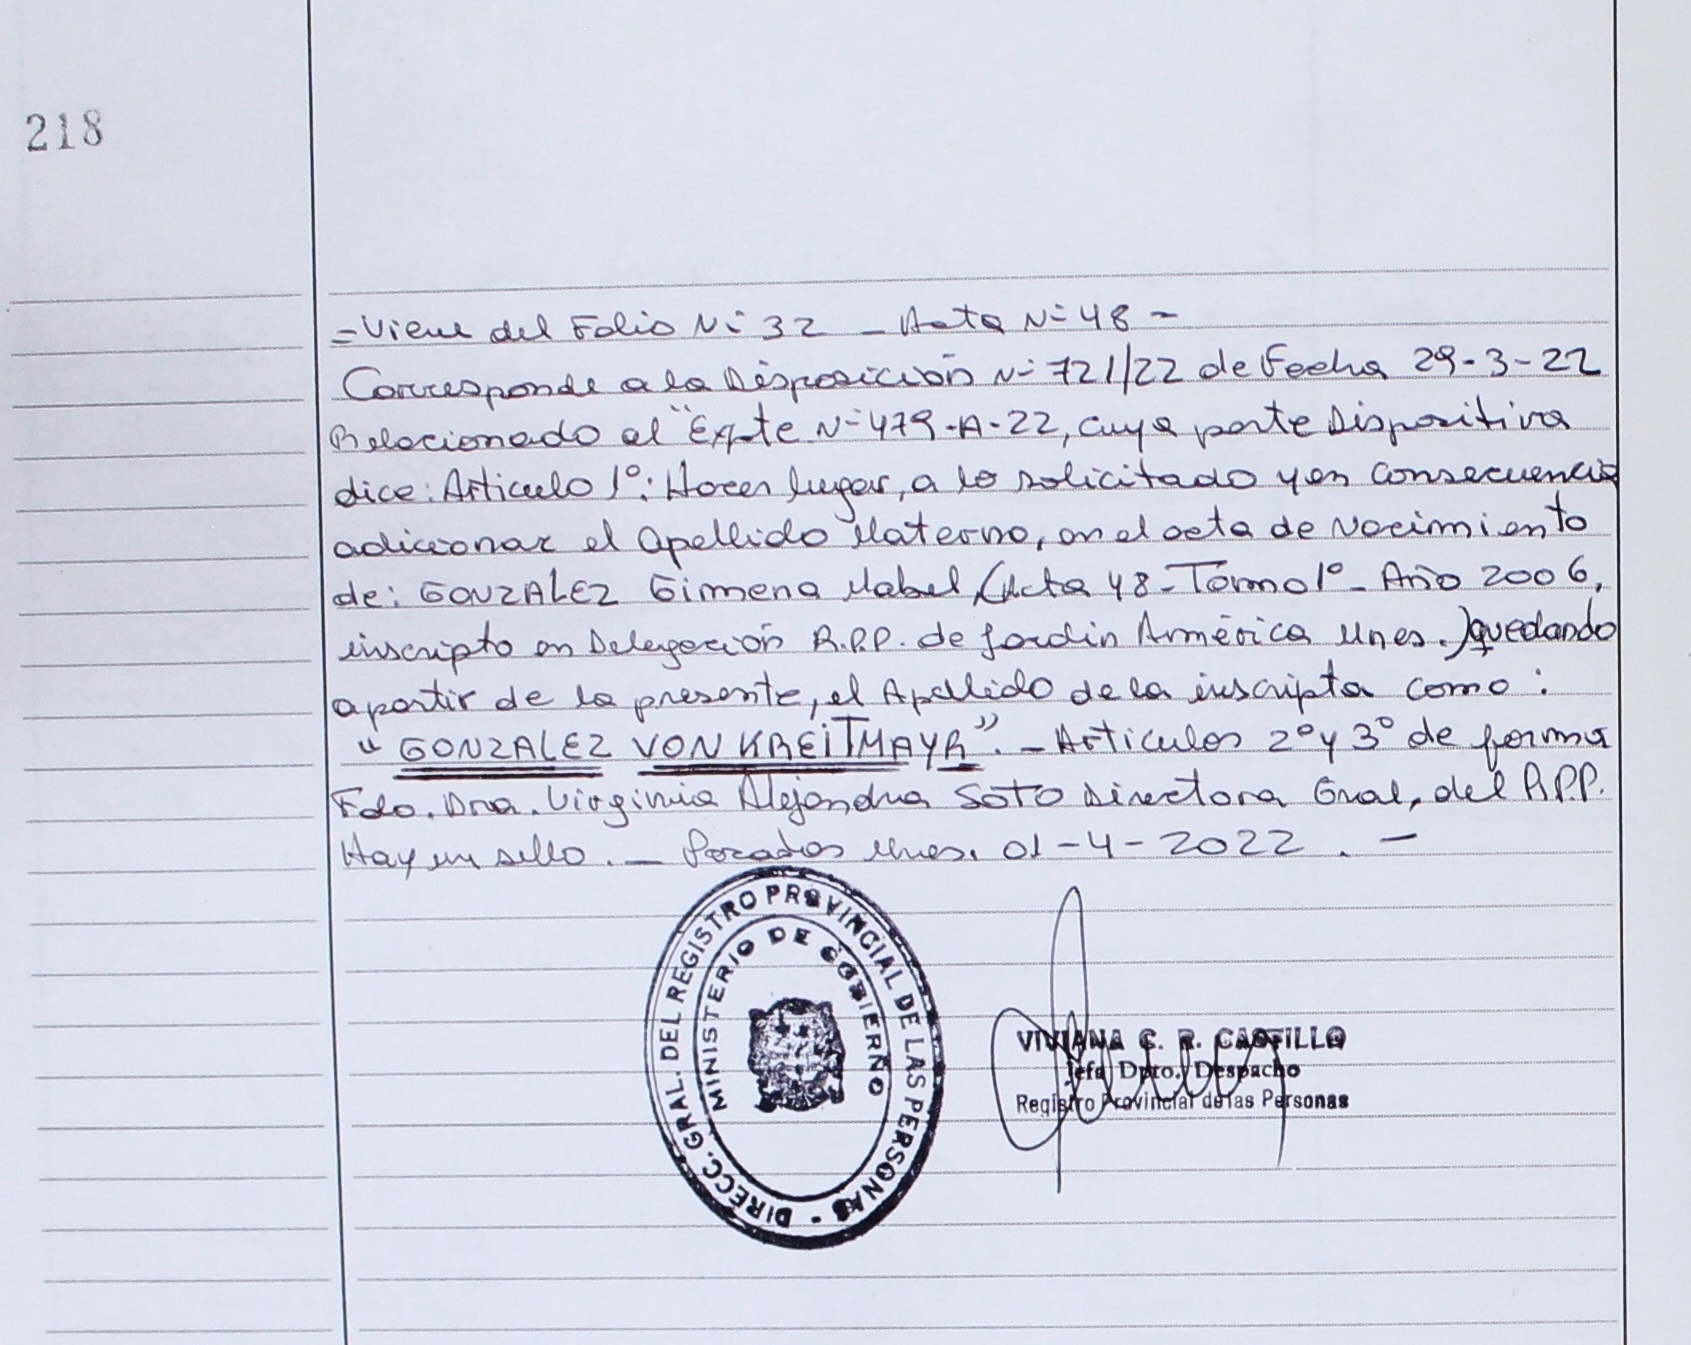 218
=Viene del Folio Nº 32 - Acta Nº 48 -
Corresponde a la Disposición Nº 721/22 de Fecha 29-3-22
Relacionado al "Expte Nº 479-A-22, cuya parte Dispositiva
dice: Articulo 1º: Hacer lugar, a lo solicitado y en consecuencia
adicionar el Apellido Materno, en el acta de Nacimiento
de: GONZALEZ Gimena Mabel, (Acta 48-Tomo 1º- Año 2006,
inscripto en Delegación R.P.P. de Jardin América Mnes.) quedando
a partir de la presente, el Apellido de la inscripta como:
"GONZALEZ VON KREITMAYR". - Articulos 2º y 3º de forma
Fdo. Dra. Virginia Alejandra SOTO Directora Gral, del R.P.P.
Hay un sello. - Posadas Mnes. 01-4-2022. -
DIRECC. GRAL. DEL REGISTRO PROVINCIAL DE LAS PERSONAS -
MINISTERIO DE GOBIERNO
VIVIANA C. R. CASTILLO
Jefa Dpto. Despacho
Registro Provincial de las Personas